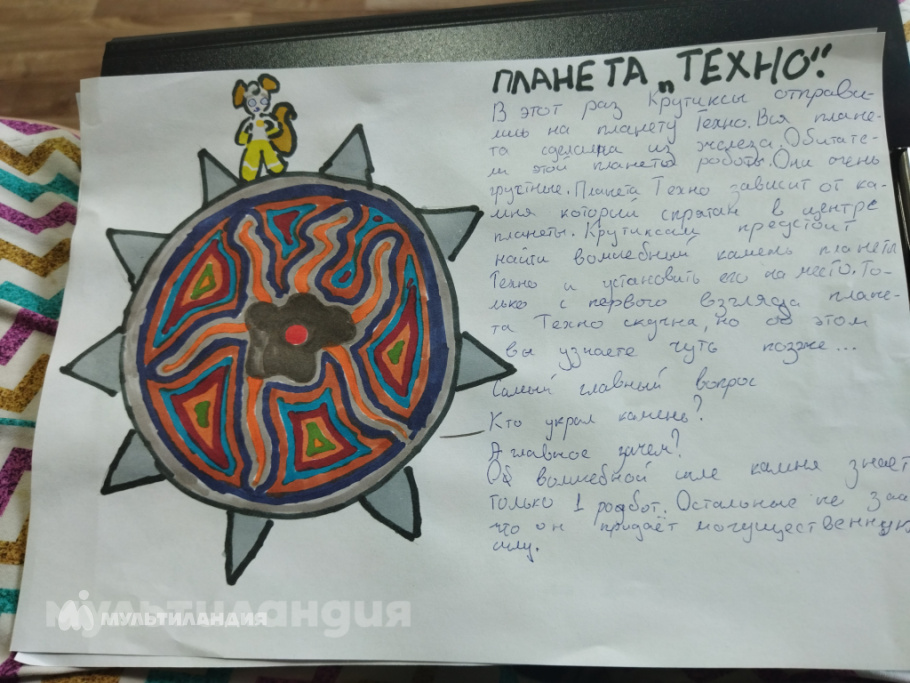 ПЛАНЕТА „ТЕХНО“.
В этот раз Крутиксы отправи-
лись на планету Техно. Вся плане-
та сделана из железа. Обитате-
ли этой планеты роботы. Они очень
грустные. Планета Техно зависит от ка-
мня который спрятан в центре
планеты. Крутиксам предстоит
найти волшебный камень планеты
Техно и установить его на место. То-
лько с первого взгляда плане-
та Техно скучна, но об этом
вы узнаете чуть позже...
Самый главный вопрос
Кто украл камень?
А главное зачем?
Об волшебной силе камня знает
только 1 робот. Остальные не
что он придаёт могущественную
силу.
мультиландия
МУЛЬТИЛАНДИЯ